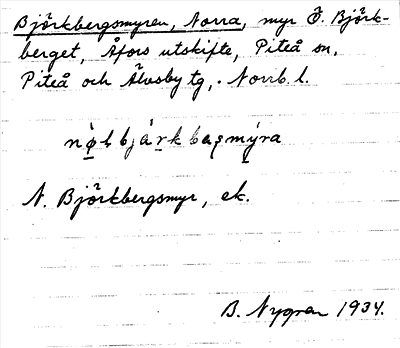 Björkbergsmyren, Norra, myr Ö. Björk-
berget, Åfors utskifte, Piteå sn,
Piteå och Älvsby tg, Norrb. l.
N. Björkbergsmyr, ek.
B. Nygren 1934.